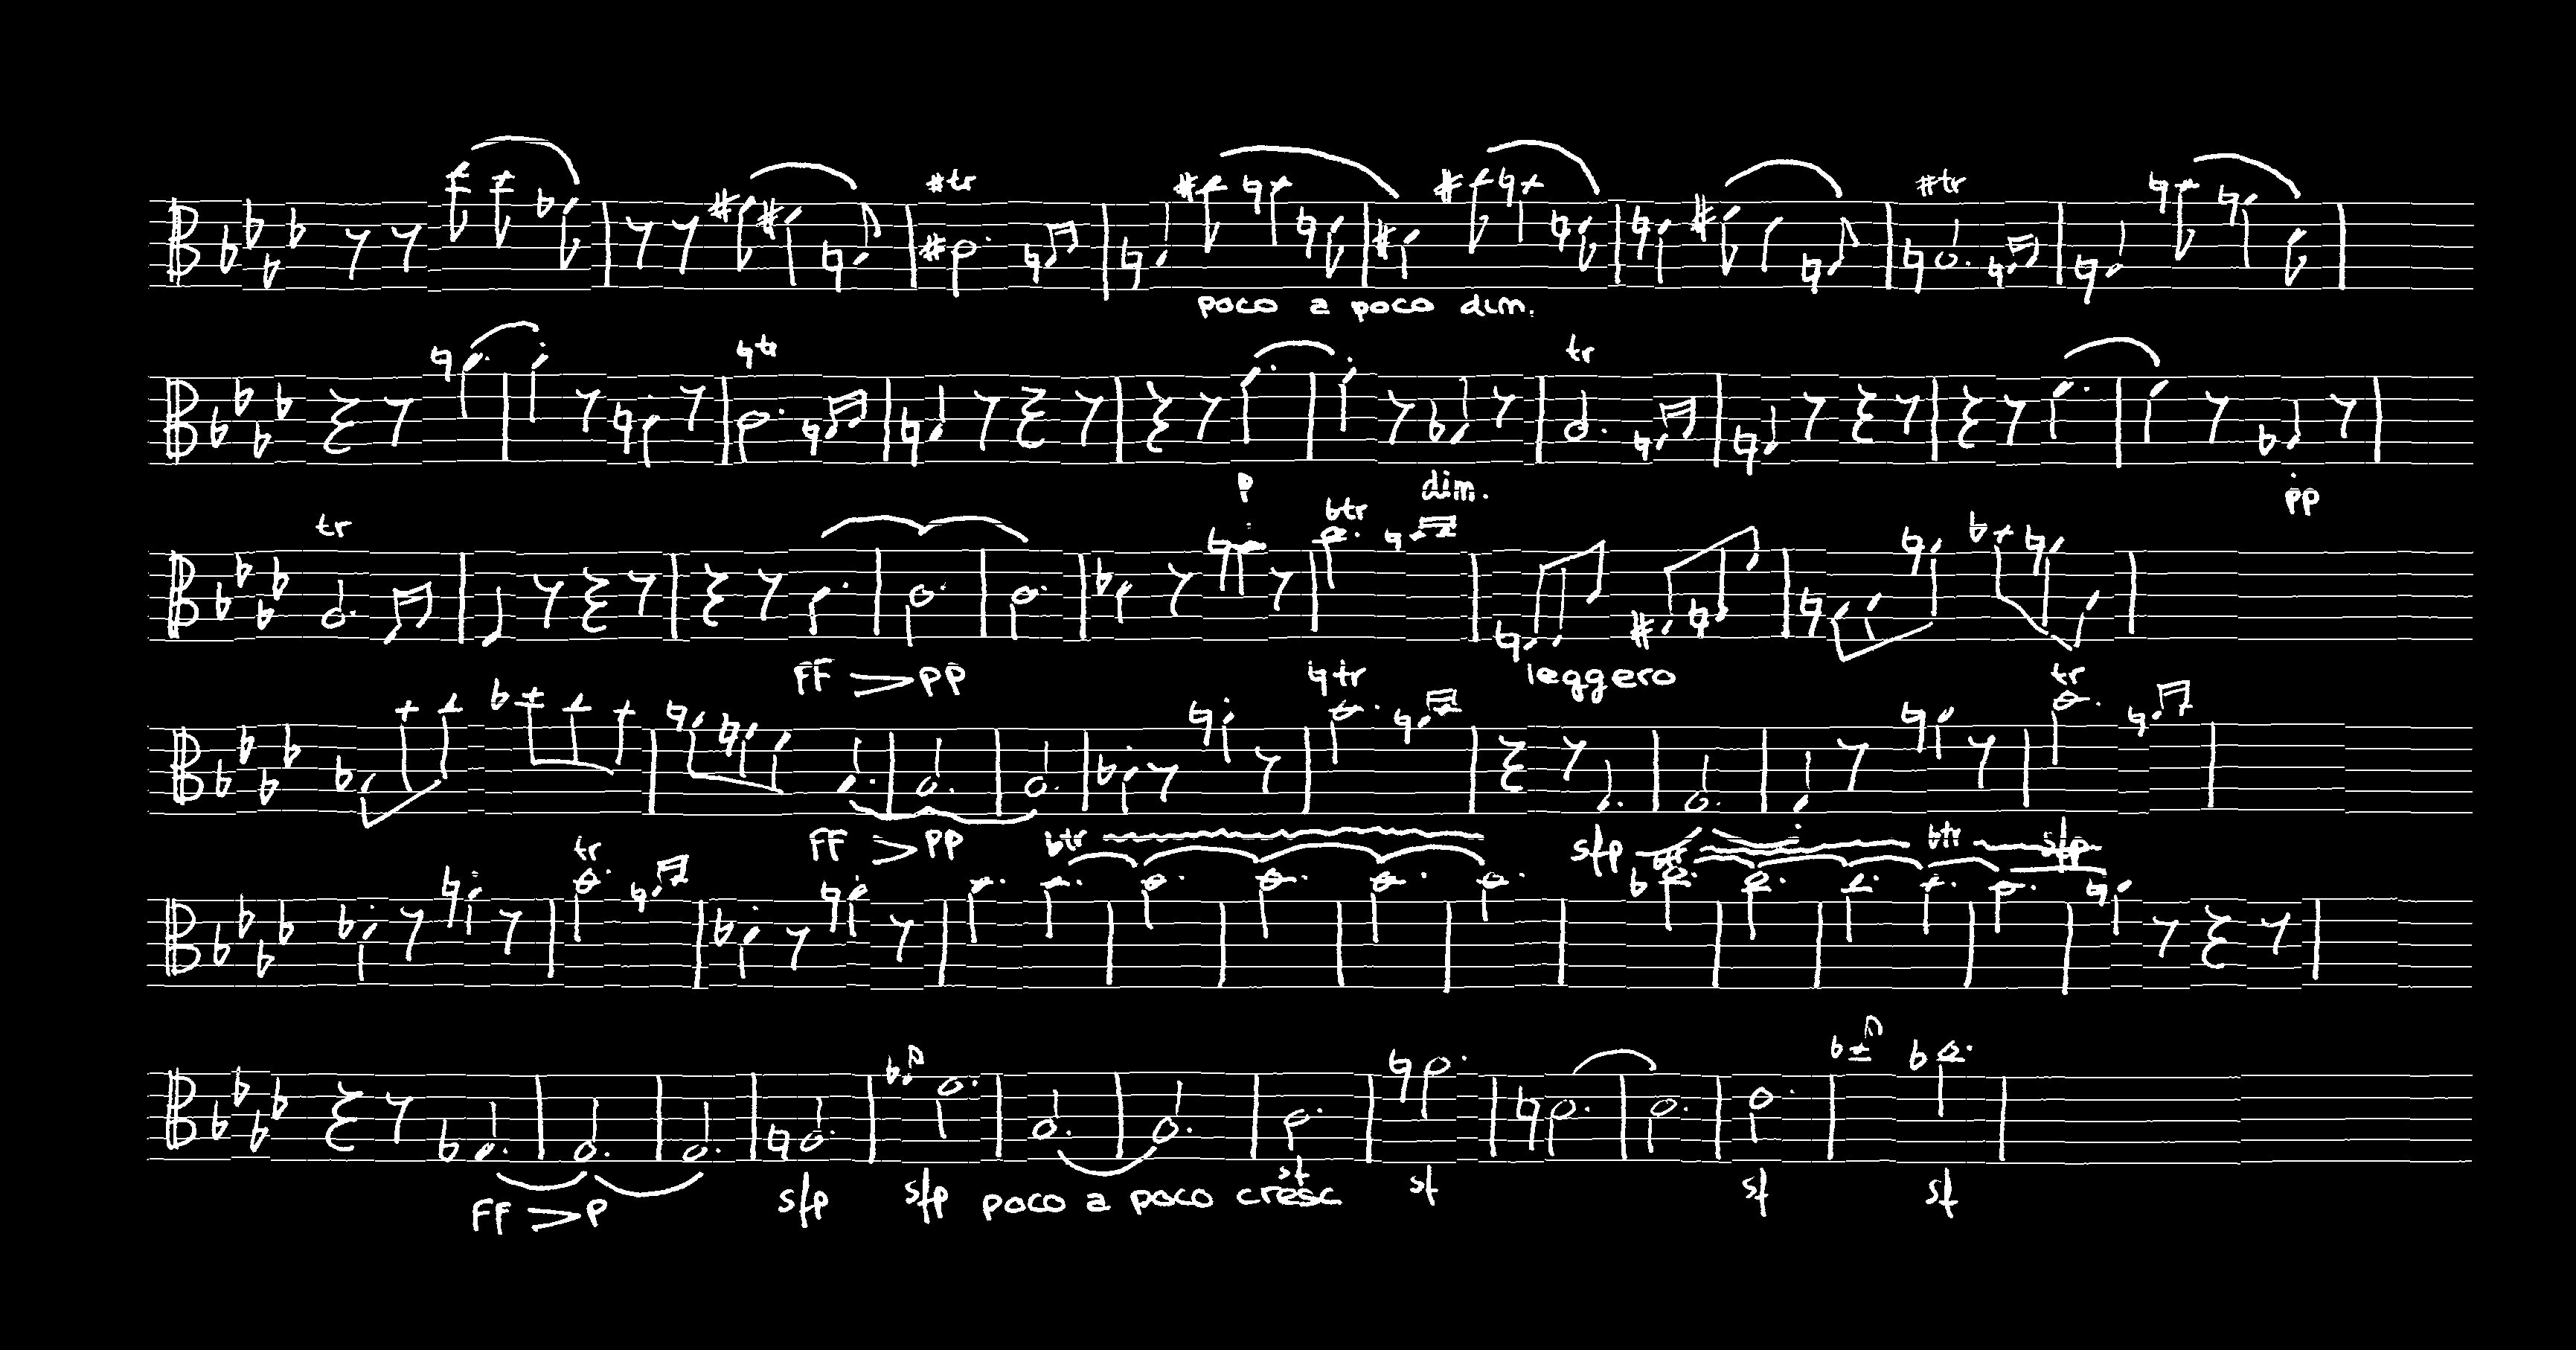 #tr #tr
poco a poco dim.
♮tr tr
p dim. pp
tr btr
FF > PP leggero
♮tr tr
FF > PP
tr btr sfp btr btr sfp
FF > P sfp sfp poco a poco cresc sf sf sf sf